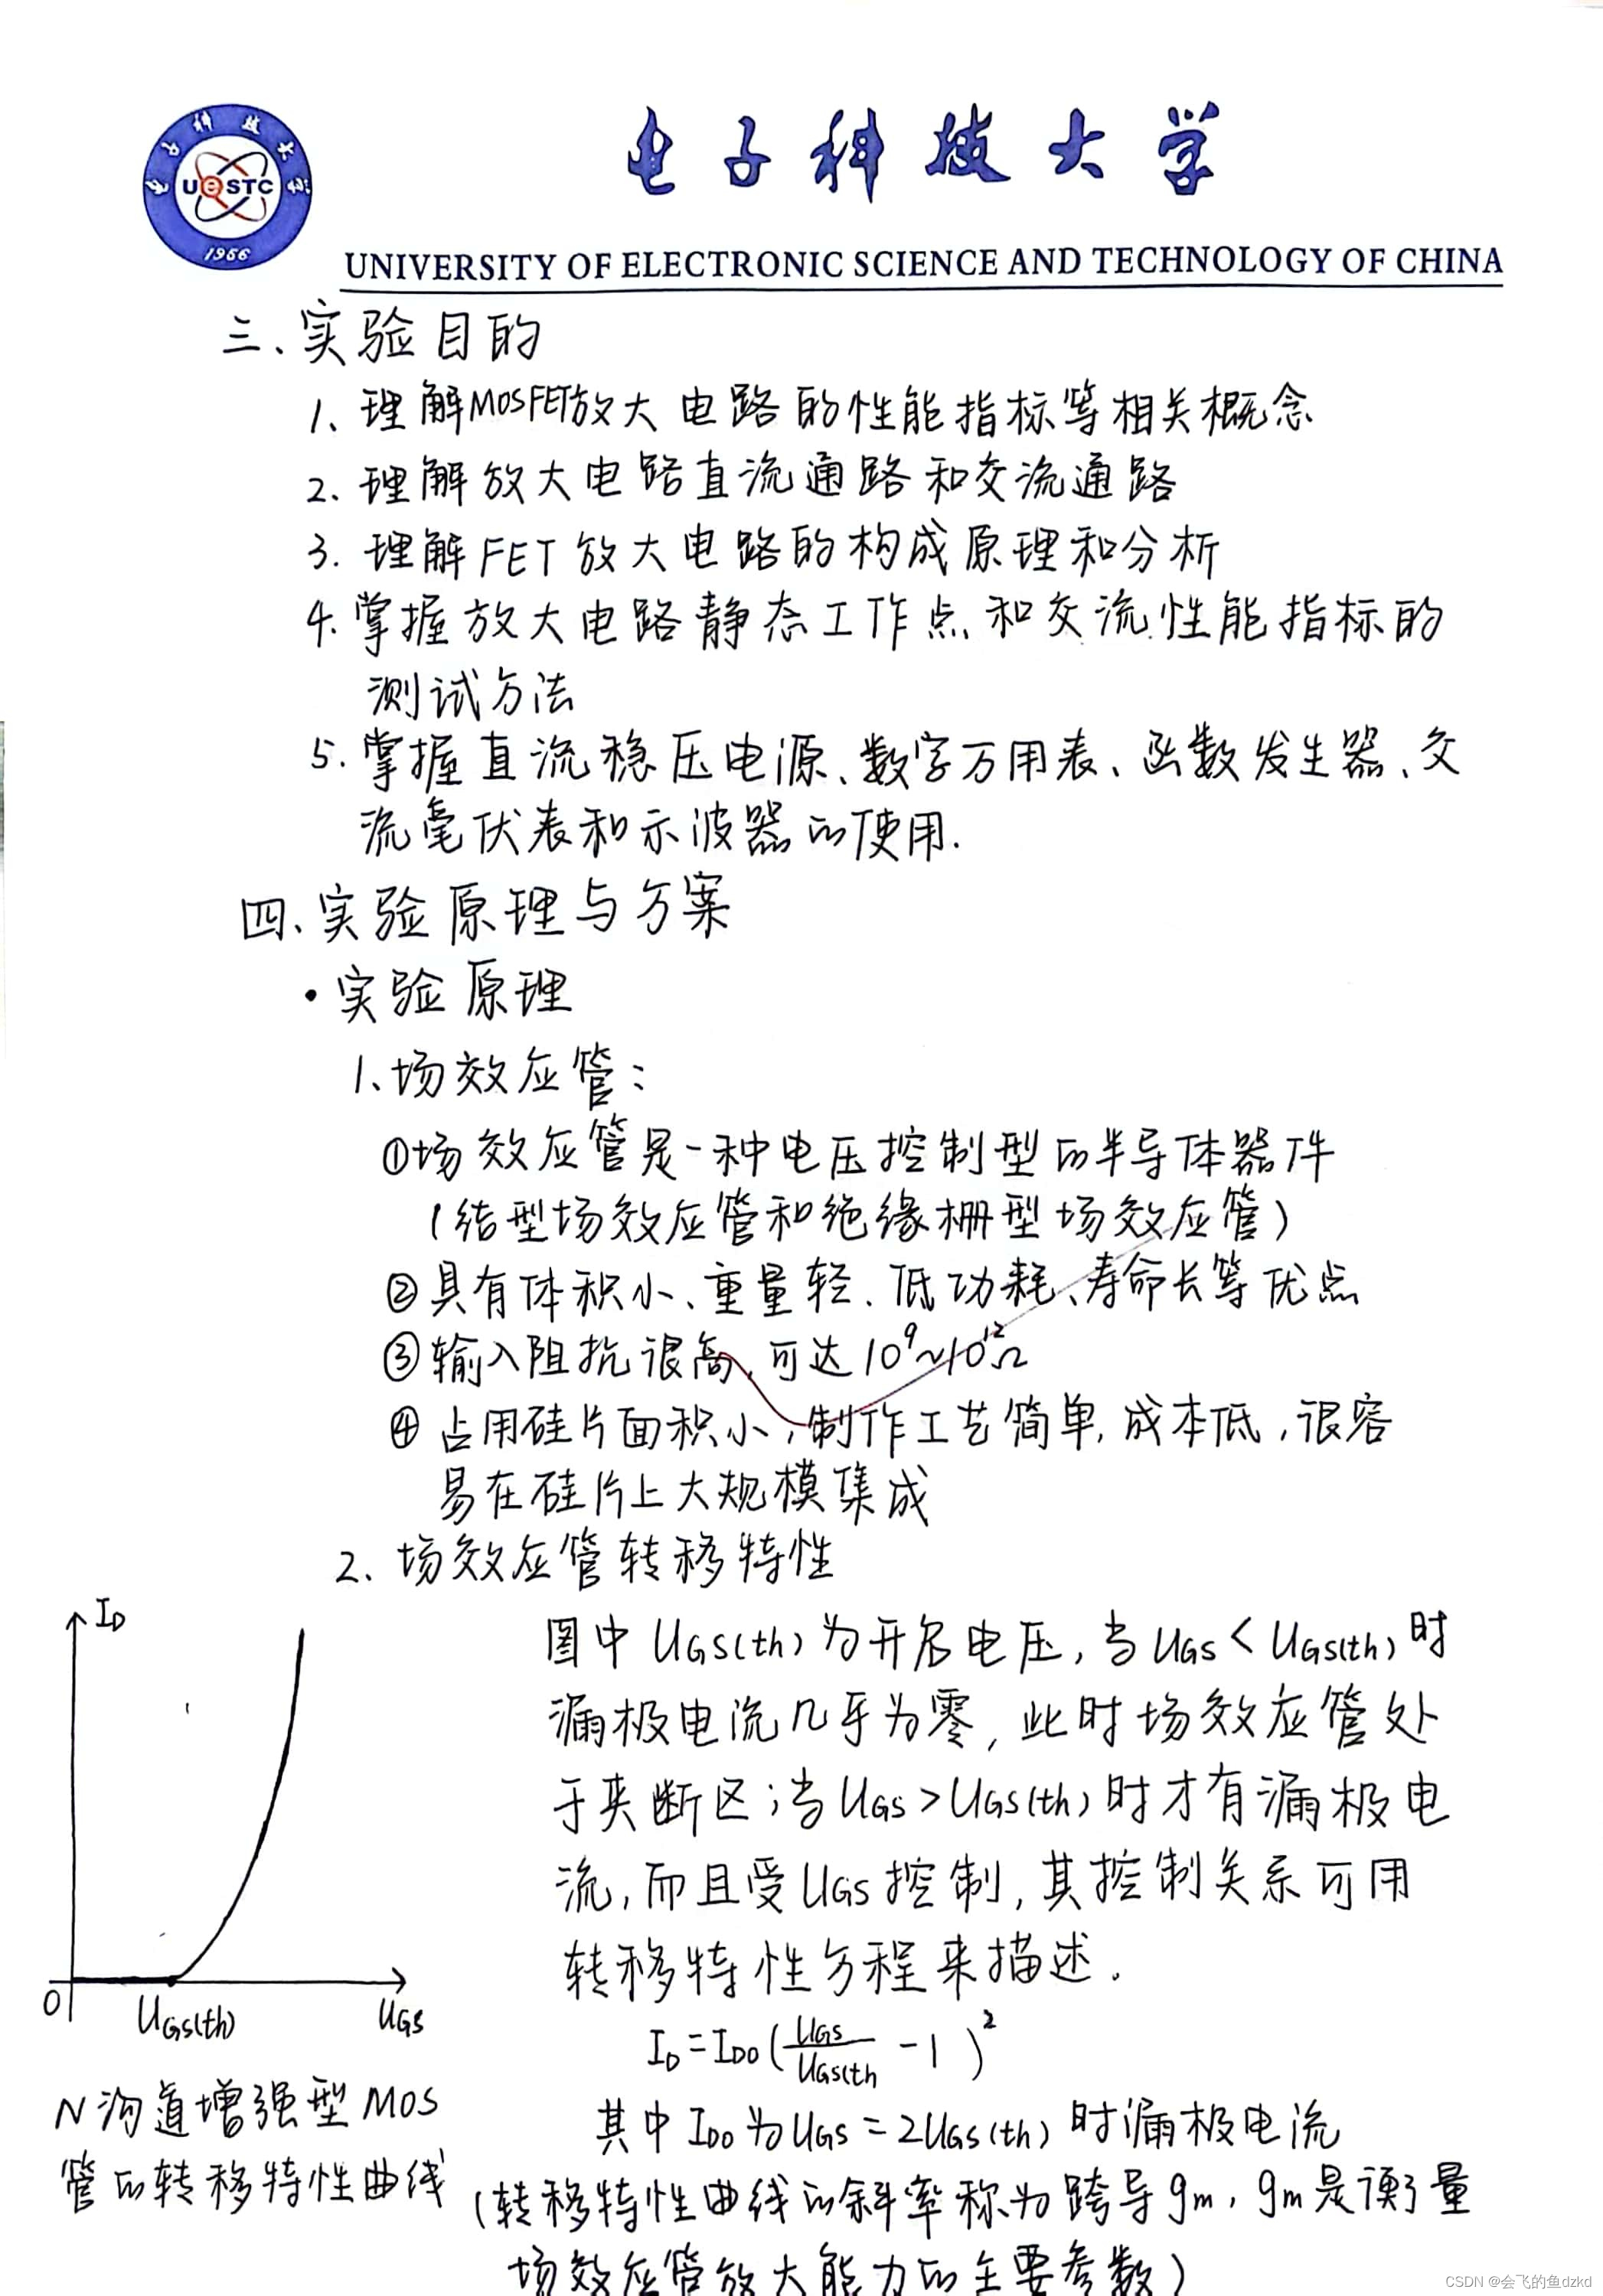 电子科技大学
UESTC
1956
电子科技大学
UNIVERSITY OF ELECTRONIC SCIENCE AND TECHNOLOGY OF CHINA
三、实验目的
1、理解MOSFET放大电路的性能指标等相关概念
2、理解放大电路直流通路和交流通路
3. 理解FET放大电路的构成原理和分析
4. 掌握放大电路静态工作点和交流性能指标的
测试方法
5. 掌握直流稳压电源、数字万用表、函数发生器、交
流毫伏表和示波器的使用.
四、实验原理与方案
·实验原理
1、场效应管：
①场效应管是一种电压控制型的半导体器件
(结型场效应管和绝缘栅型场效应管)
②具有体积小、重量轻、低功耗、寿命长等优点
③输入阻抗很高,可达10⁹~10¹²Ω
④占用硅片面积小,制作工艺简单,成本低,很容
易在硅片上大规模集成
2、场效应管转移特性
I_D
O
U_GS(th)
U_GS
N沟道增强型MOS
管的转移特性曲线
图中U_GS(th)为开启电压,当U_GS<U_GS(th)时
漏极电流几乎为零,此时场效应管处
于夹断区;当U_GS>U_GS(th)时才有漏极电
流,而且受U_GS控制,其控制关系可用
转移特性方程来描述.
I_D=I_DO(U_GS/U_GS(th -1)²
其中I_DO为U_GS=2U_GS(th)时漏极电流
(转移特性曲线的斜率称为跨导gm,gm是衡量
场效应管放大能力的主要参数)
CSDN @会飞的鱼dzkd